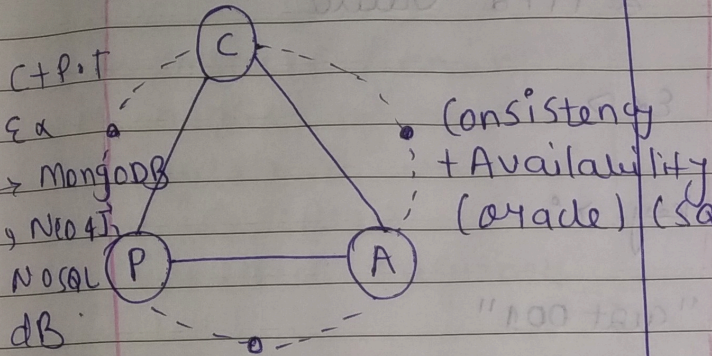 C
C+P.T
Ex
→ MongoDB
, Neo4J,
NOSQL
dB
P
A
Consistency
+ Availability
(oracle) (SQ